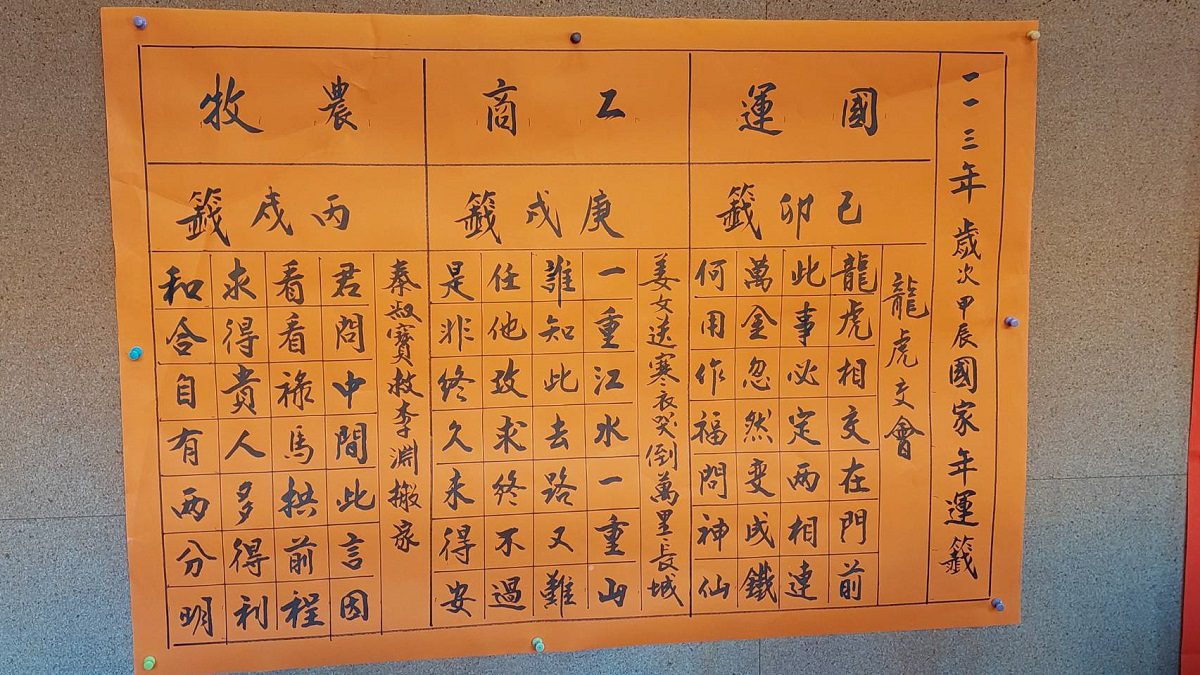 一一三年歲次甲辰國家年運籤
國運
己卯籤
龍虎交會
龍虎相交在門前
此事必定两相連
萬金忽然变成鐵
何用作福問神仙
工商
庚戌籤
姜女送寒衣哭倒萬里長城
一重江水一重山
誰知此去路又難
任他改求終不過
是非終久未得安
農牧
丙戌籤
秦叔寶救李淵搬家
君問中間此言因
看看祿馬拱前程
求得貴人多得利
和合自有两分明